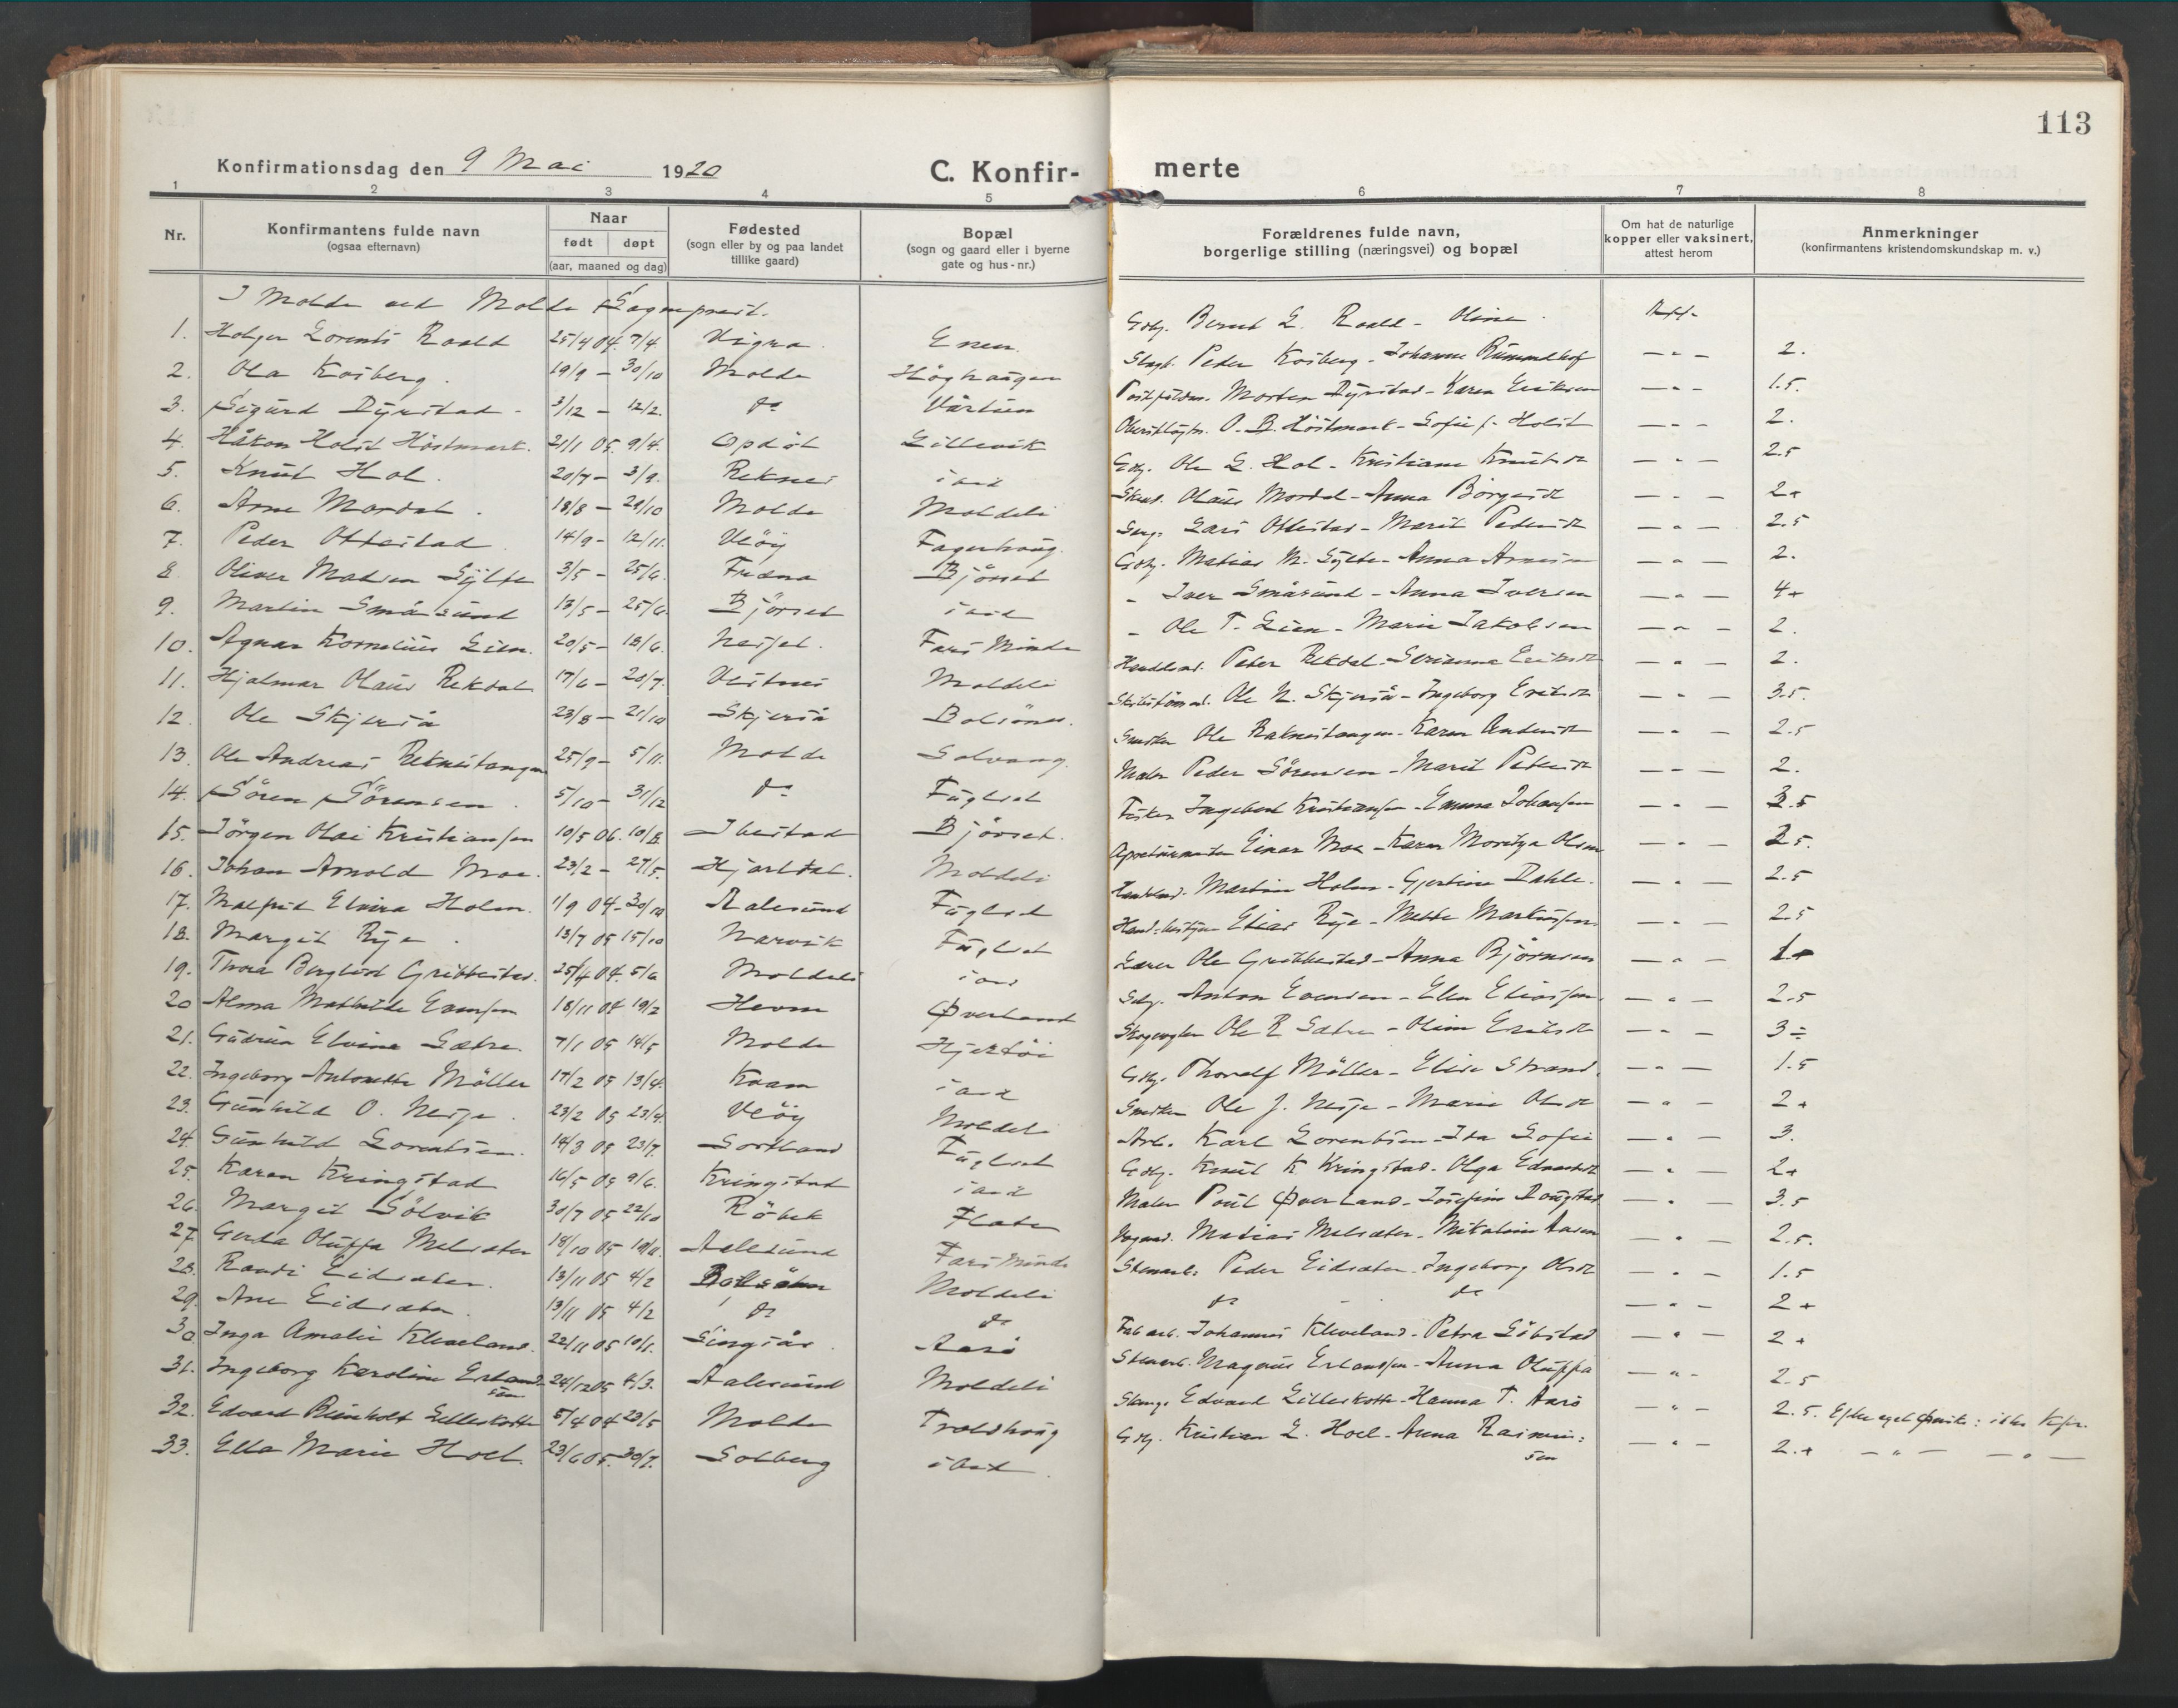 113
Konfirmationsdag den 9 Mai 1920
C. Konfir- merte
1 2 3 4 5 6 7 8
Nr.
Konfirmantens fulde navn
(ogsaa efternavn)
Naar
født døpt
(aar, maaned og dag)
Fødested
(sogn eller by og paa landet
tillike gaard)
Bopæl
(sogn og gaard eller i byerne
gate og hus-nr.)
Forældrenes fulde navn,
borgerlige stilling (næringsvei) og bopæl
Om hat de naturlige
kopper eller vaksinert,
attest herom
Anmerkninger
(konfirmantens kristendomskundskap m. v.)
I Molde ved Molde Sogneprest.
1. Holger Lorents Roald 25/4 04. 7/4 Vigra Enen. Gbr. Bernt L. Roald - Oline
2. Ola Kosberg. 19/9 - 30/10 Molde Höghaugen Peder Kosberg - Johanne - " - 2.
3. Sigurd Dyrstad 3/12 - 12/2. do Morten Dyrstad - Karen Eriksen - " - 1.5.
4. Håkon Holst Höstmark. 21/1 05. 9/4. Opdöl Lillevik O. B. Höstmark - Sofie f. Holst - " - 2.
5. Knut Hol. 20/7 - 3/9. Reknes ibid Gbr. Ole L. Hol - Kristiane Knutsdt - " - 2.5
6. Arne Mordal. 18/8 - 29/10 Molde Moldeli Olaus Mordal - Anna - " - 2+
7. Peder Ottestad 14/9 - 12/11. Veöy Fagerhaug. Lars Ottestad - Marit Pedersdt - " - 2.5
8. Oliver Madsen Gylte 3/5 - 25/6. Fræna Bjørset Gbr. Matias M. Gylte - Anna - " - 2.
9. Martin Småsund 13/5 - 25/6. Björset ibid - Iver Småsund - Anna Iversen - " - 4+
10. Agnar Kornelius Lien. 20/5 - 18/6. Nesjet. Fars Minde - Ole T. Lien - Marie Jakobsen - " - 2.
11. Hjalmar Olaus Rekdal 17/6 - 20/7. Vestnes Moldeli Peter Rekdal - - " - 2.
12. Ole Skjerså 23/8 - 21/10 Skjerså Bolsönes. Ole N. Skjerså - Ingeborg - " - 3.5.
13. Ole Andreas Reknestangen 25/9 - 5/11. Molde Solvang. Ole Raknestangen - Karen - " - 2.5
14. Sören Sörensen. 5/10 - 31/12 do Fuglset Maler Peder Sörensen - Marit - " - 2.
15. Jörgen Olai Kristiansen 10/5 06. 10/8. Ibestad Björset. Fisker Ingebert Kristiansen - Emma Johansen - " - 3.5
16. Johan Arnold Moe. 23/2 - 27/5. Hjartdal. Moldeli Einar Moe - Karen Olsen - " - 2.5.
17. Malfrid Elvira Holm. 1/9 04 - 30/10 Aalesund Fuglset Martin Holm - Gjertine Dahle. - " - 2.5
18. Margit Rye. 13/7 05 15/10 Narvik Fuglset Elias Rye - Mette Markussen - " - 2.5
19. Thora Bergliot Gribbestad. 25/4 04. 5/6 Moldeli ibid Lærer Ole Gribbestad - Anna Björnsen - " - 1+
20. Alma Mathilde Evensen 18/11 04 19/2 Hevne Øverland Anton Evensen - Ellen Eliassen. - " - 2.5
21. Gudrun Elvine Sætre. 7/1 05 14/5 Molde Hjertöi Ole R. Sætre - Oline - " - 3÷
22. Ingeborg Antonette Möller 17/2 05 13/4. Kvam ibid Gbr. Thoralf Möller - Elise Strand. - " - 1.5
23. Gunhild O. Nesje. 23/2 05 23/4. Veöy Moldeli Ole J. Nesje - Marie - " - 2+
24. Gunhild Lorentsen. 14/3 05 23/7. Sortland Fuglset Arb. Karl Lorentsen - Ida Sofie - " - 3.
25. Karen Kringstad 16/5 05 9/6. Kringstad ibid Gbr. Knut K. Kringstad - Olga - " - 2+
26. Margit Sölvik 30/7 05 22/10 Röbek Flaten Maler Poul Øverland - Josefine - " - 3.5
27. Gerda Oluffa Melsæter 18/10 05 19/11. Aalesund Fars Minde Matias Melsæter - Nikoline Aasen - " - 2.5.
28. Randi Eidsæter. 13/11 05 4/2 Moldeli Stenarb. Peder Eidsæter - Ingeborg Olsdt - " - 1.5
29. Ane Eidsæter. 13/11 05 4/2 do do do - do - " - 2+
30. Inga Amalie Kleveland. 22/11 05 10/1. Singsås. Aarö Fab arb. Johannes Kleveland - Petra - " - 2+
31. Ingeborg Karoline Erland- 24/12 05 4/3. Aalesund Moldeli Stenarb. Magnus Erlandsen - Anna Oluffa - " - 2.5
sen
32. Edvard Reinholt Lilleskotte 5/4 04 23/5 Molde Troldhaug Edvard Lilleskotte - Hanna T. Aarö - " - 2.5. Efter eget önske: ikke Kfm.
33. Ella Marie Hoel. 23/6 05. 30/7. Solberg ibid. Gbr. Kristian L. Hoel - Anna - " - 2.+ - " - - " -
sen